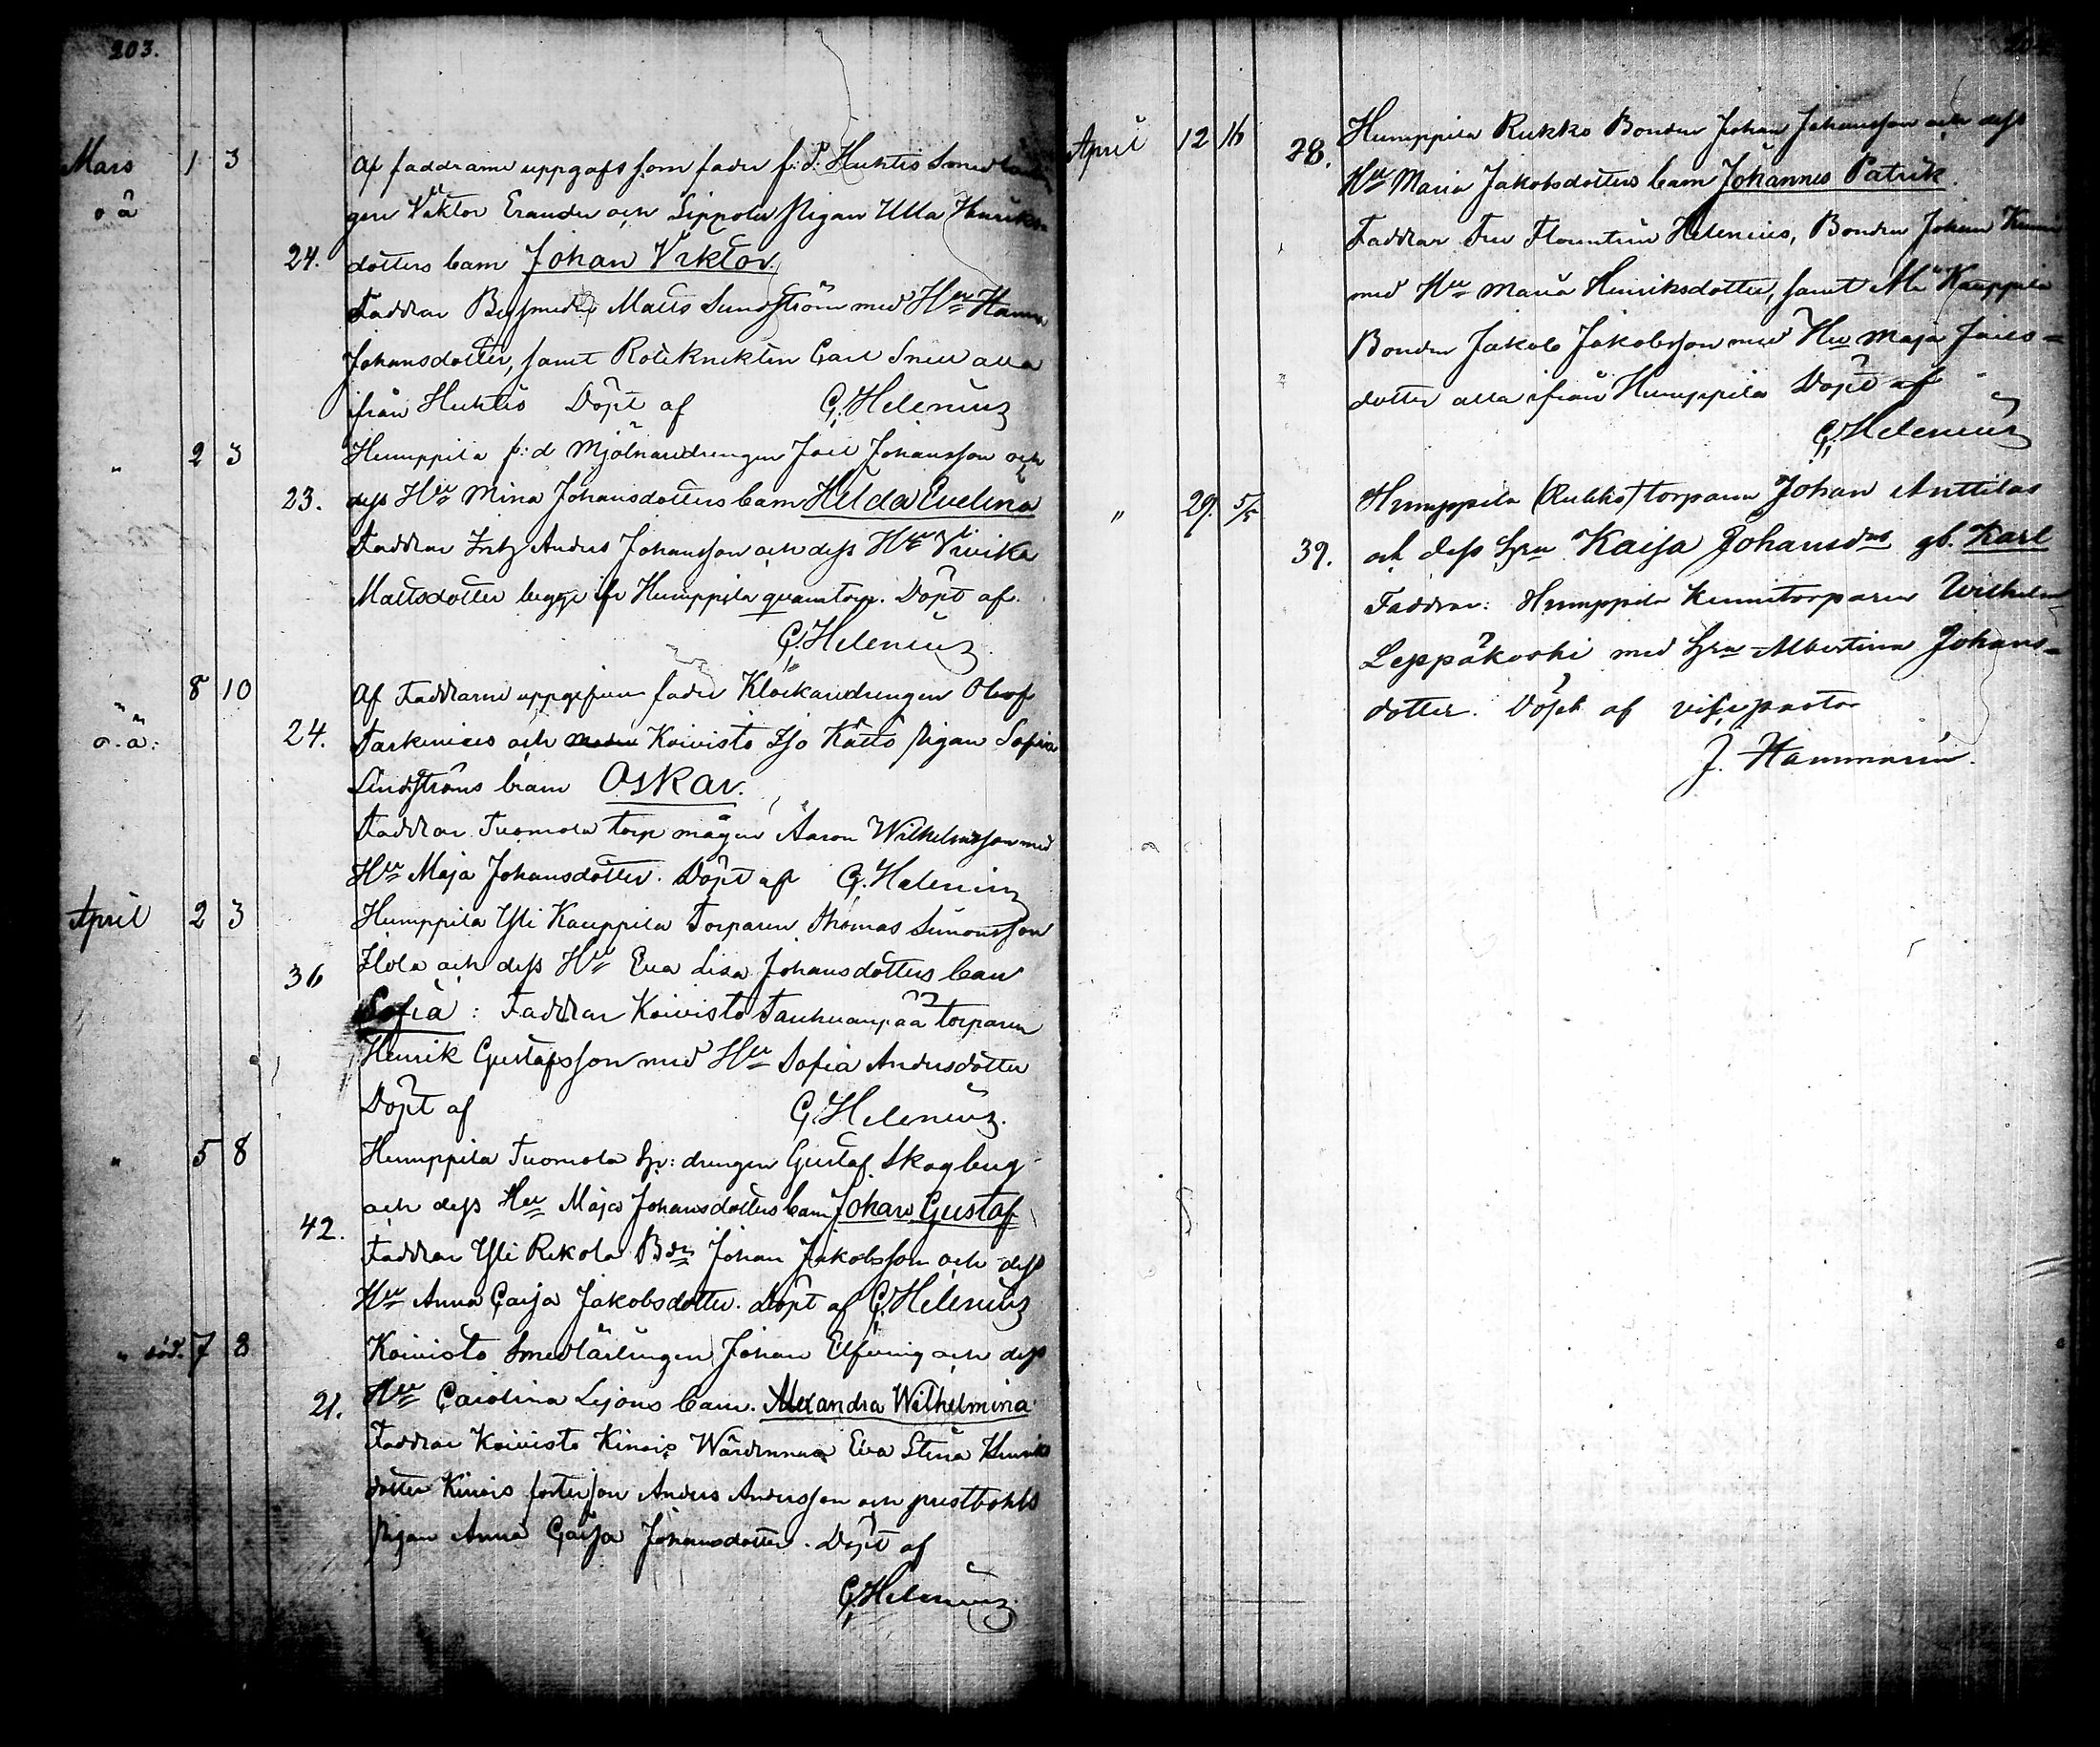 203.
Mars 1 3 Af faddrarne uppgafs som fader f: d: Huhtis Smedlärlin
o ä gen Viktor Erander och Sippola Pigan Ulla Henriks-
24. dotters barn Johan Viktor.
Faddrar Bysmeden Matts Sundström med Hru Hanna
Johansdotter, samt Roteknekten Carl Snell alla
ifrån Huhtis Döpt af G. Helenius
" 2 3 Humppila f: d Mjölnaredrengen Joel Johansson och
23. dess Hru Mina Johansdotters barn Hilda Evelina
Faddrar Inh Anders Johansson och dess Hru Vivika
Mattsdotter begge ifr Humppila qvarntorp. Döpt af
G. Helenius
" 8 10 Af Faddrarne uppgifven fader Klockaredrengen Olof
o. ä: 24. Tarkenius och Koivisto Iso Kätto Pigan Sofia
Lindströms barn Oskar.
Faddrar Tuomola torp mågen Aaron Wilhelmsson med
Hru Maja Johansdotter. Döpt af G. Helenius
April 2 3 Humppila Yli Kauppila Torparen Thomas Simonsson
36 Ilola och dess Hru Eva Lisa Johansdotters barn
Sofia: Faddrar Koivisto Tauhuanpää torparen
Henrik Gustafsson med Hru Sofia Andersdotter
Döpt af G. Helenius.
" 5 8 Humppila Tuomola drengen Gustaf Skogberg
42. och dess Hru Maja Johansdotters barn Johan Gustaf
Faddrar Yli Rekola Bdn Johan Jakobsson och dess
Hru Anna Caisa Jakobsdotter. Döpt af G. Helenius
" död. 7 8 Koivisto Smedlärlingen Johan Elfving och dess
21. Hru Carolina Lejons barn. Alexandra Wilhelmina
Faddrar Koivisto Kinois Wärdinnan Eva Stina Henriks
dotter Kinois fosterson Anders Andersson och prestbohls
Pigan Anna Caisa Johansdotter. Döpt af
G. Helenius
April 12 16 Humppila Rukko Bonden Johan Johansson och dess
28. Hru Maria Jakobsdotters barn Johannes Patrik.
Faddrar Fru Florentine Helenius, Bonden Johan
med Hru Maria Henriksdotter, samt Kauppila
Bonden Jakob Jakobsson med Hru Maja Joels-
dotter alla ifrån Humppila Döpt af
G. Helenius
" 29. 5/5 Humppila (Rukko) torparen Johan Anttilas
39. och dess hru Kaisa Johansdrs gb. Karl
Faddrar: Humppila torparen Wilhelm
Leppäkoski med hru Albertina Johans-
dotter. Döpt af vicepastor
J. Hammarén.